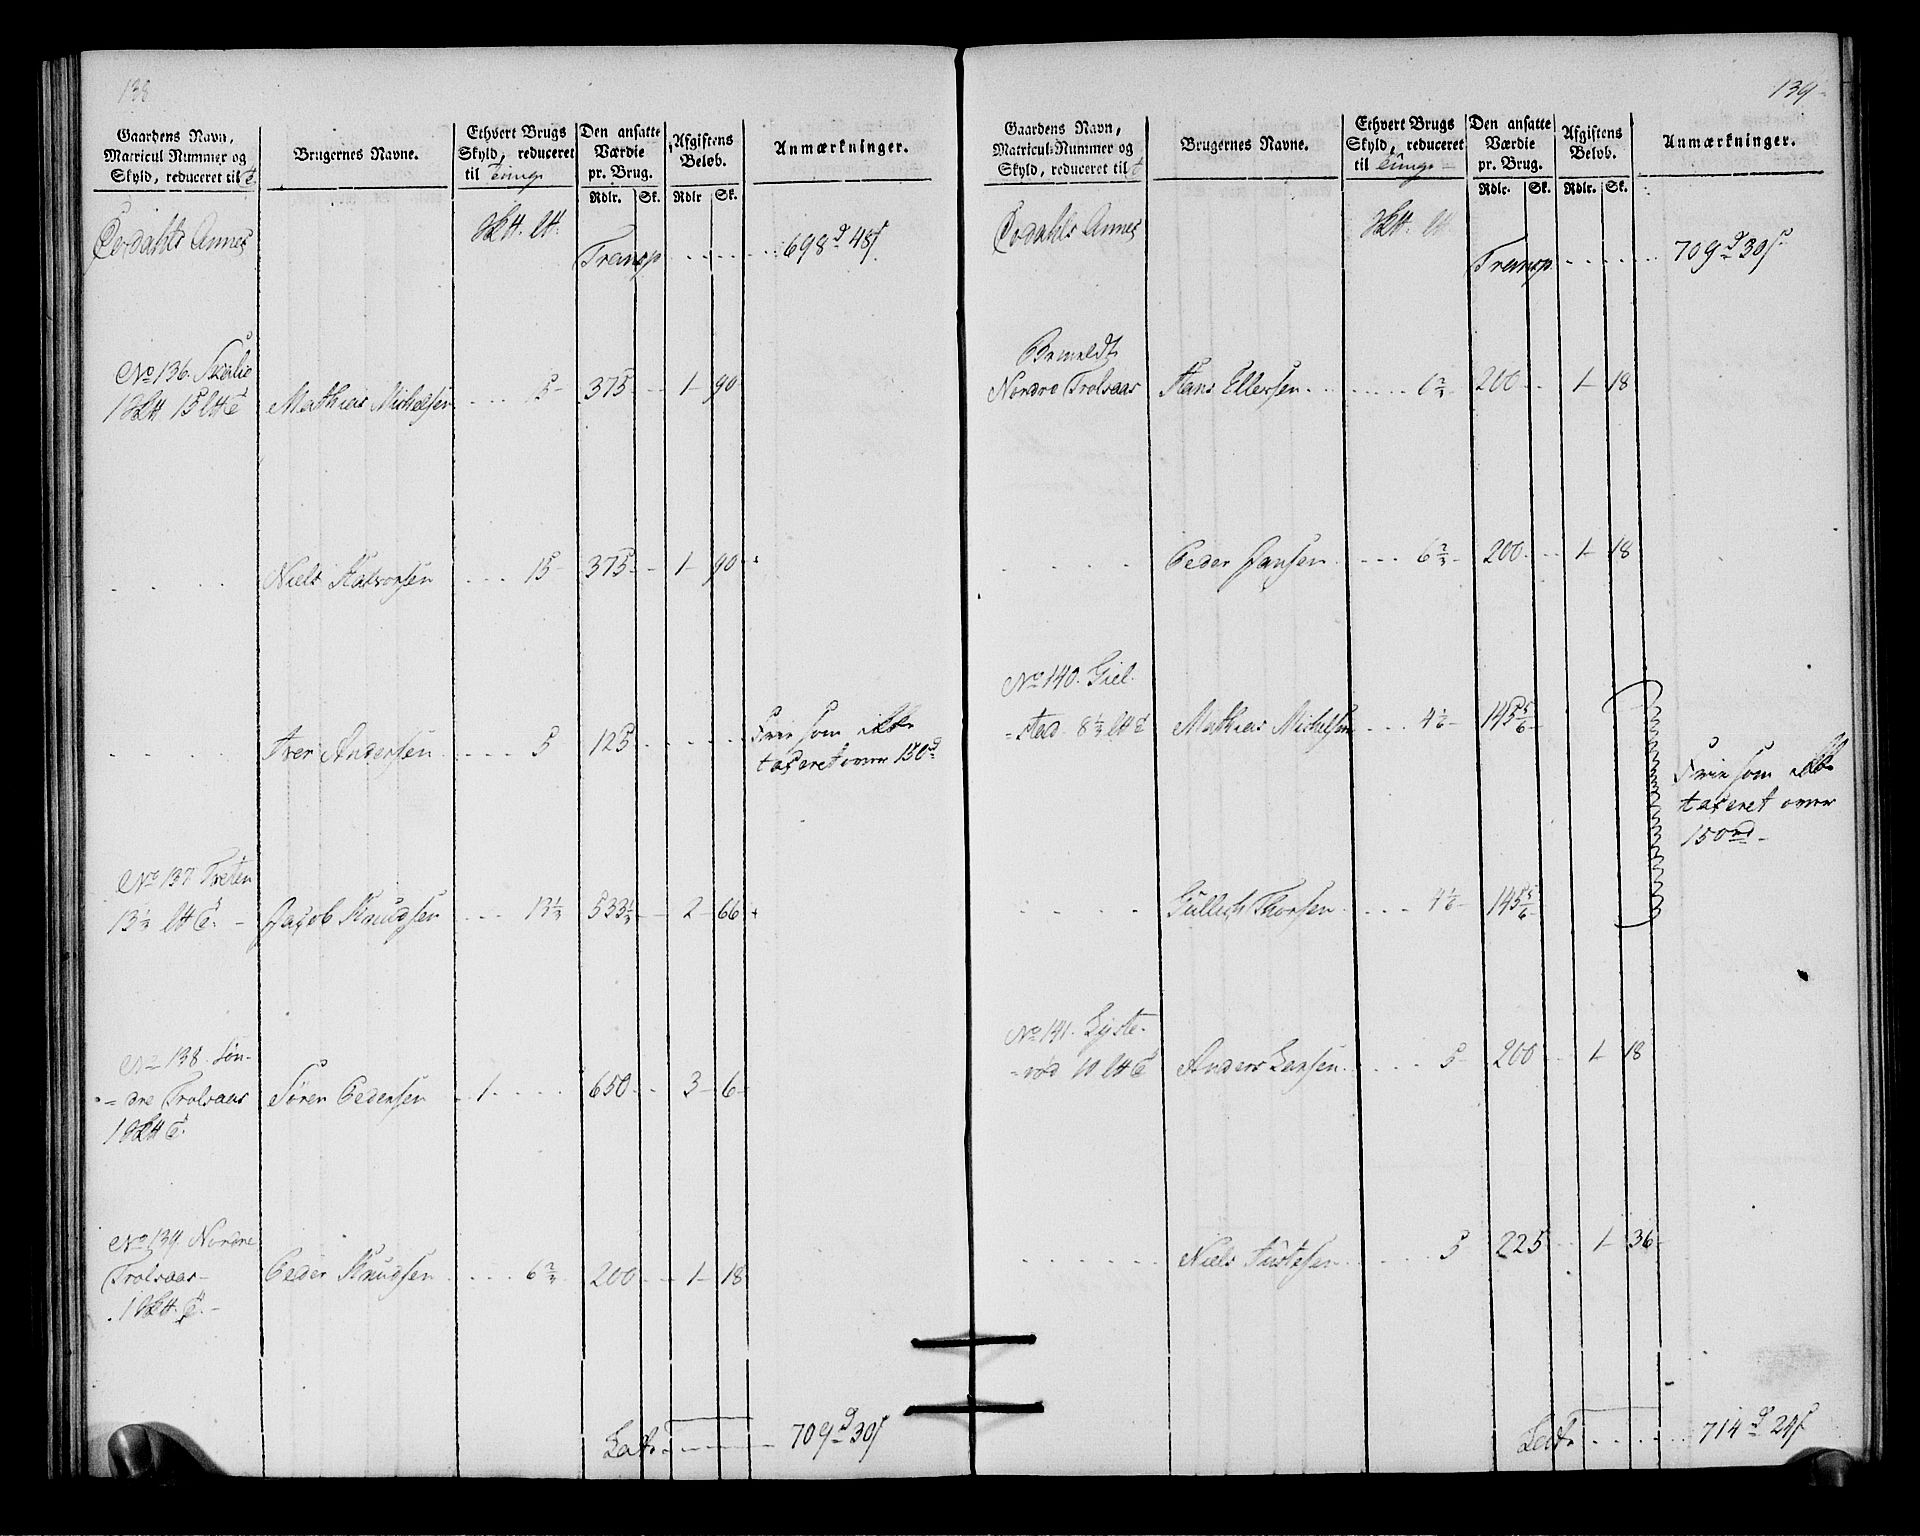 138
Gaardens Navn,
Matricul Nummer og
Skyld, reduceret til T.
Brugernes Navne.
Ethvert Brugs
Skyld, reduceret
til Tunge
Den ansatte
Værdie
pr. Brug.
Rdlr. Sk.
Afgiftens
Beløb.
Rdlr Sk.
Anmærkninger.
Annex Transp 698 d 48 s
No 136. Skalie
1 Skt 15 lt T Mathias Michelsen 15 375 1 90
Niels Halvorsen 15 375 1 90
Iver Andersen 5 125 Frie som ikke
taxeret over 150 d
No 137 Treten
13 1/3 lt T. Jacob Knudsen 13 1/3 533 1/3 2 66
No 138. Søn-
dre Trolsaas Søren Pedersen 1 650 3 6
1 Skt T.
No 139. Nordre
Trolsaas Peder Knudsen 6 2/3 200 1 18
1 Skt. T.
Lats 709 d 30 s
139
Gaardens Navn,
Matricul-Nummer og
Skyld, reduceret til T
Brugernes Navne.
Ethvert Brugs
Skyld, reduceret
til Tunge
Den ansatte
Værdie
pr. Brug.
Rdlr. Sk.
Afgiftens
Beløb.
Rdlr. Sk.
Anmærkninger.
Annex Transp 709 d 30 s
Bemeldt
Nordre Trolsaas Hans Ellersen 6 2/3 200 1 18
Peder Hansen 6 2/3 200 1 18
No 140. Giel-
sted 8 1/3 lt T Mathias Michelsen 4 1/6 145 5/6
Frie som ikke
taxeret over
150 rd
Gullich Thorsen 4 1/6 145 5/6
No 141. Lyste-
rød 10 lt T Anders Larsen 5 200 1 18
Niels 5 225 1 36
Lats 714 d 24 s